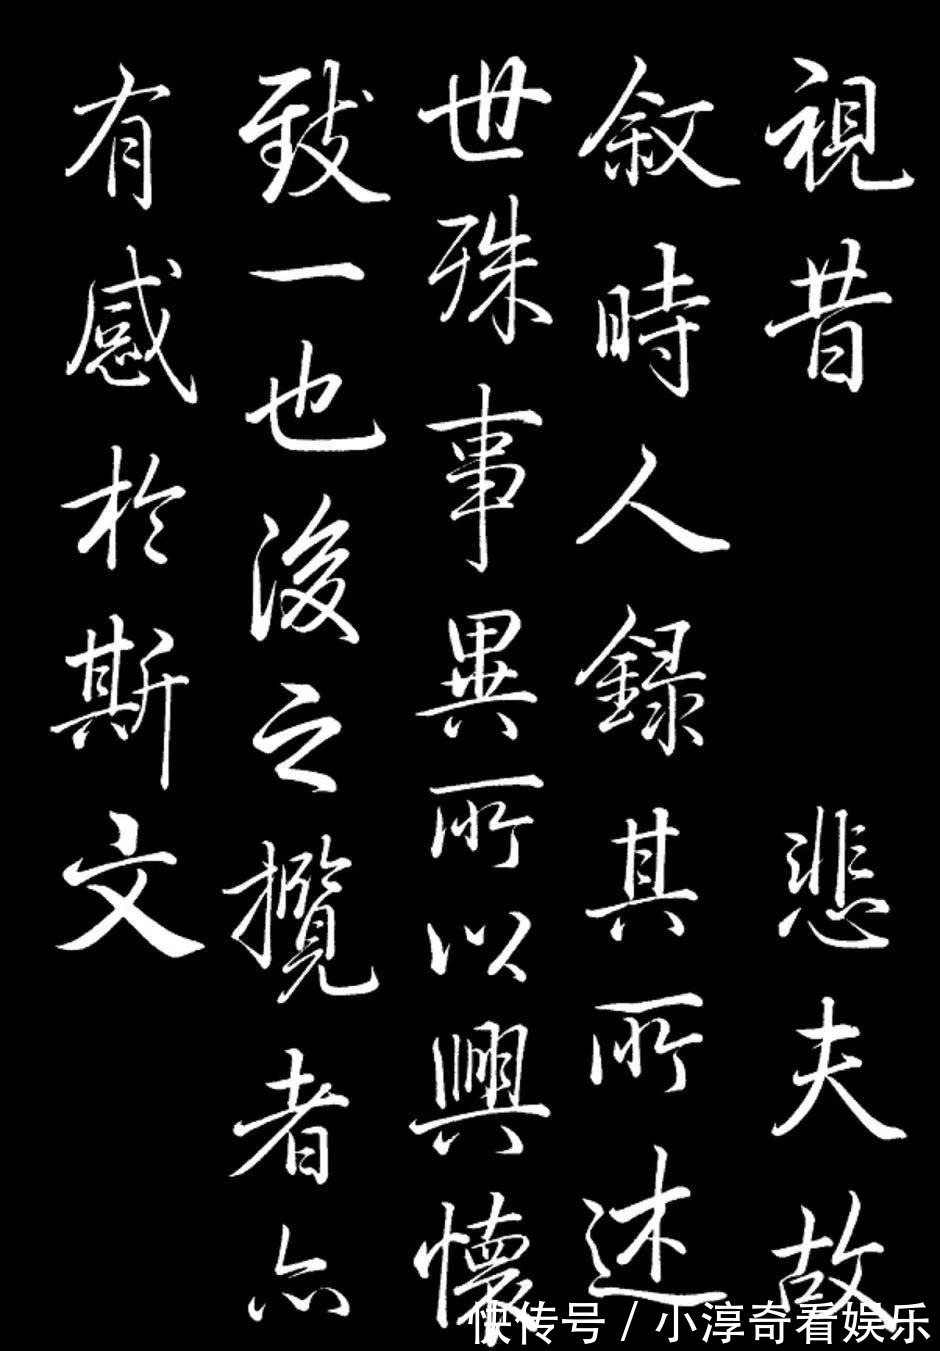 視昔 悲夫故
敘時人録其所述
世殊事異所以興懷
致一也後之攬者亦
有感於斯文
快传号/小淳奇看娱乐